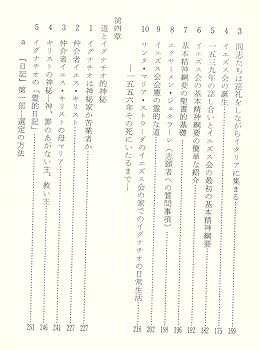 3 同志たちは巡礼をしながらイタリアに集まる 169
4 イエズス会の誕生 175
5 一五三九年の話し合いとイエズス会の最初の基本精神綱要 182
6 イエズス会の基本精神綱要の簡単な紹介 192
7 基本精神綱要の聖書的基礎 196
8 エクサーメン・ジェネラーレ(志願者への質問事項) 198
9 イエズス会会憲の霊的な道 202
10 サンタ・マリア・ストラーダのイエズス会の家でのイグナチオの日常生活 218
―一五五六年その死にいたるまで―
第四章
道とイグナチオ的神秘
1 イグナチオは神秘家か苦業者か 227
2 仲介者イエス・キリスト 227
3 仲介者イエス・キリストの母マリア
4 キリストの神秘―神、罪のあがない主、救い主 240
5 イグナチオの「霊的日記」 246
a 『日記』第一部―選定の方法 251